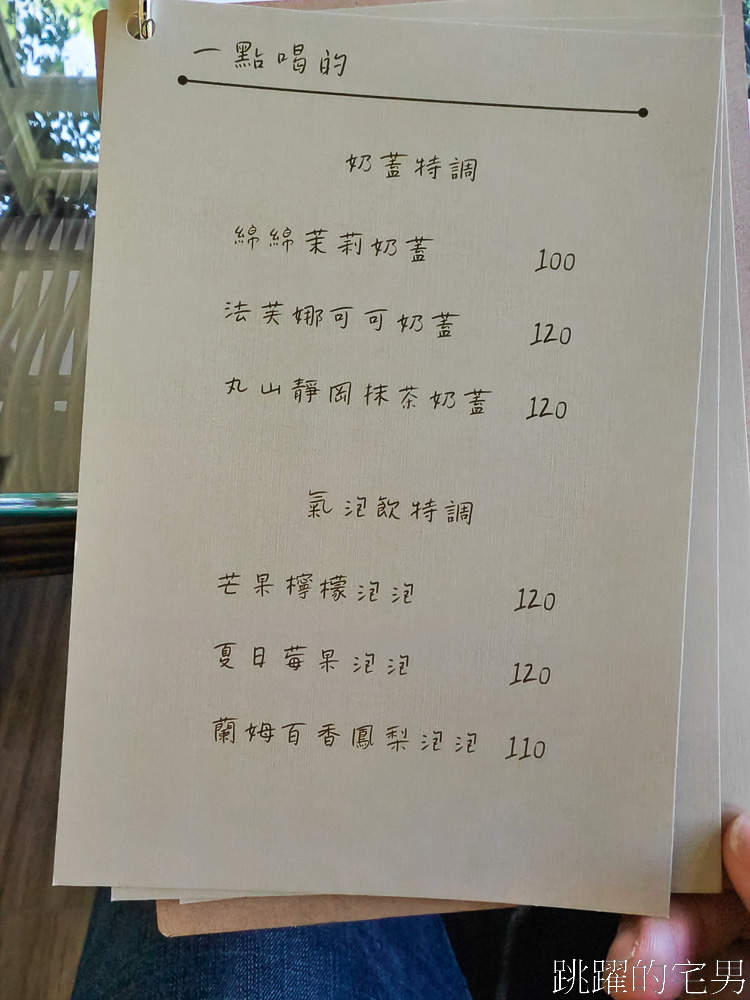 一點喝的
奶蓋特調
綿綿茉莉奶蓋 100
法芙娜可可奶蓋 120
丸山靜岡抹茶奶蓋 120
氣泡飲特調
芒果檸檬泡泡 120
夏日莓果泡泡 120
蘭姆百香鳳梨泡泡 110
跳躍的宅男